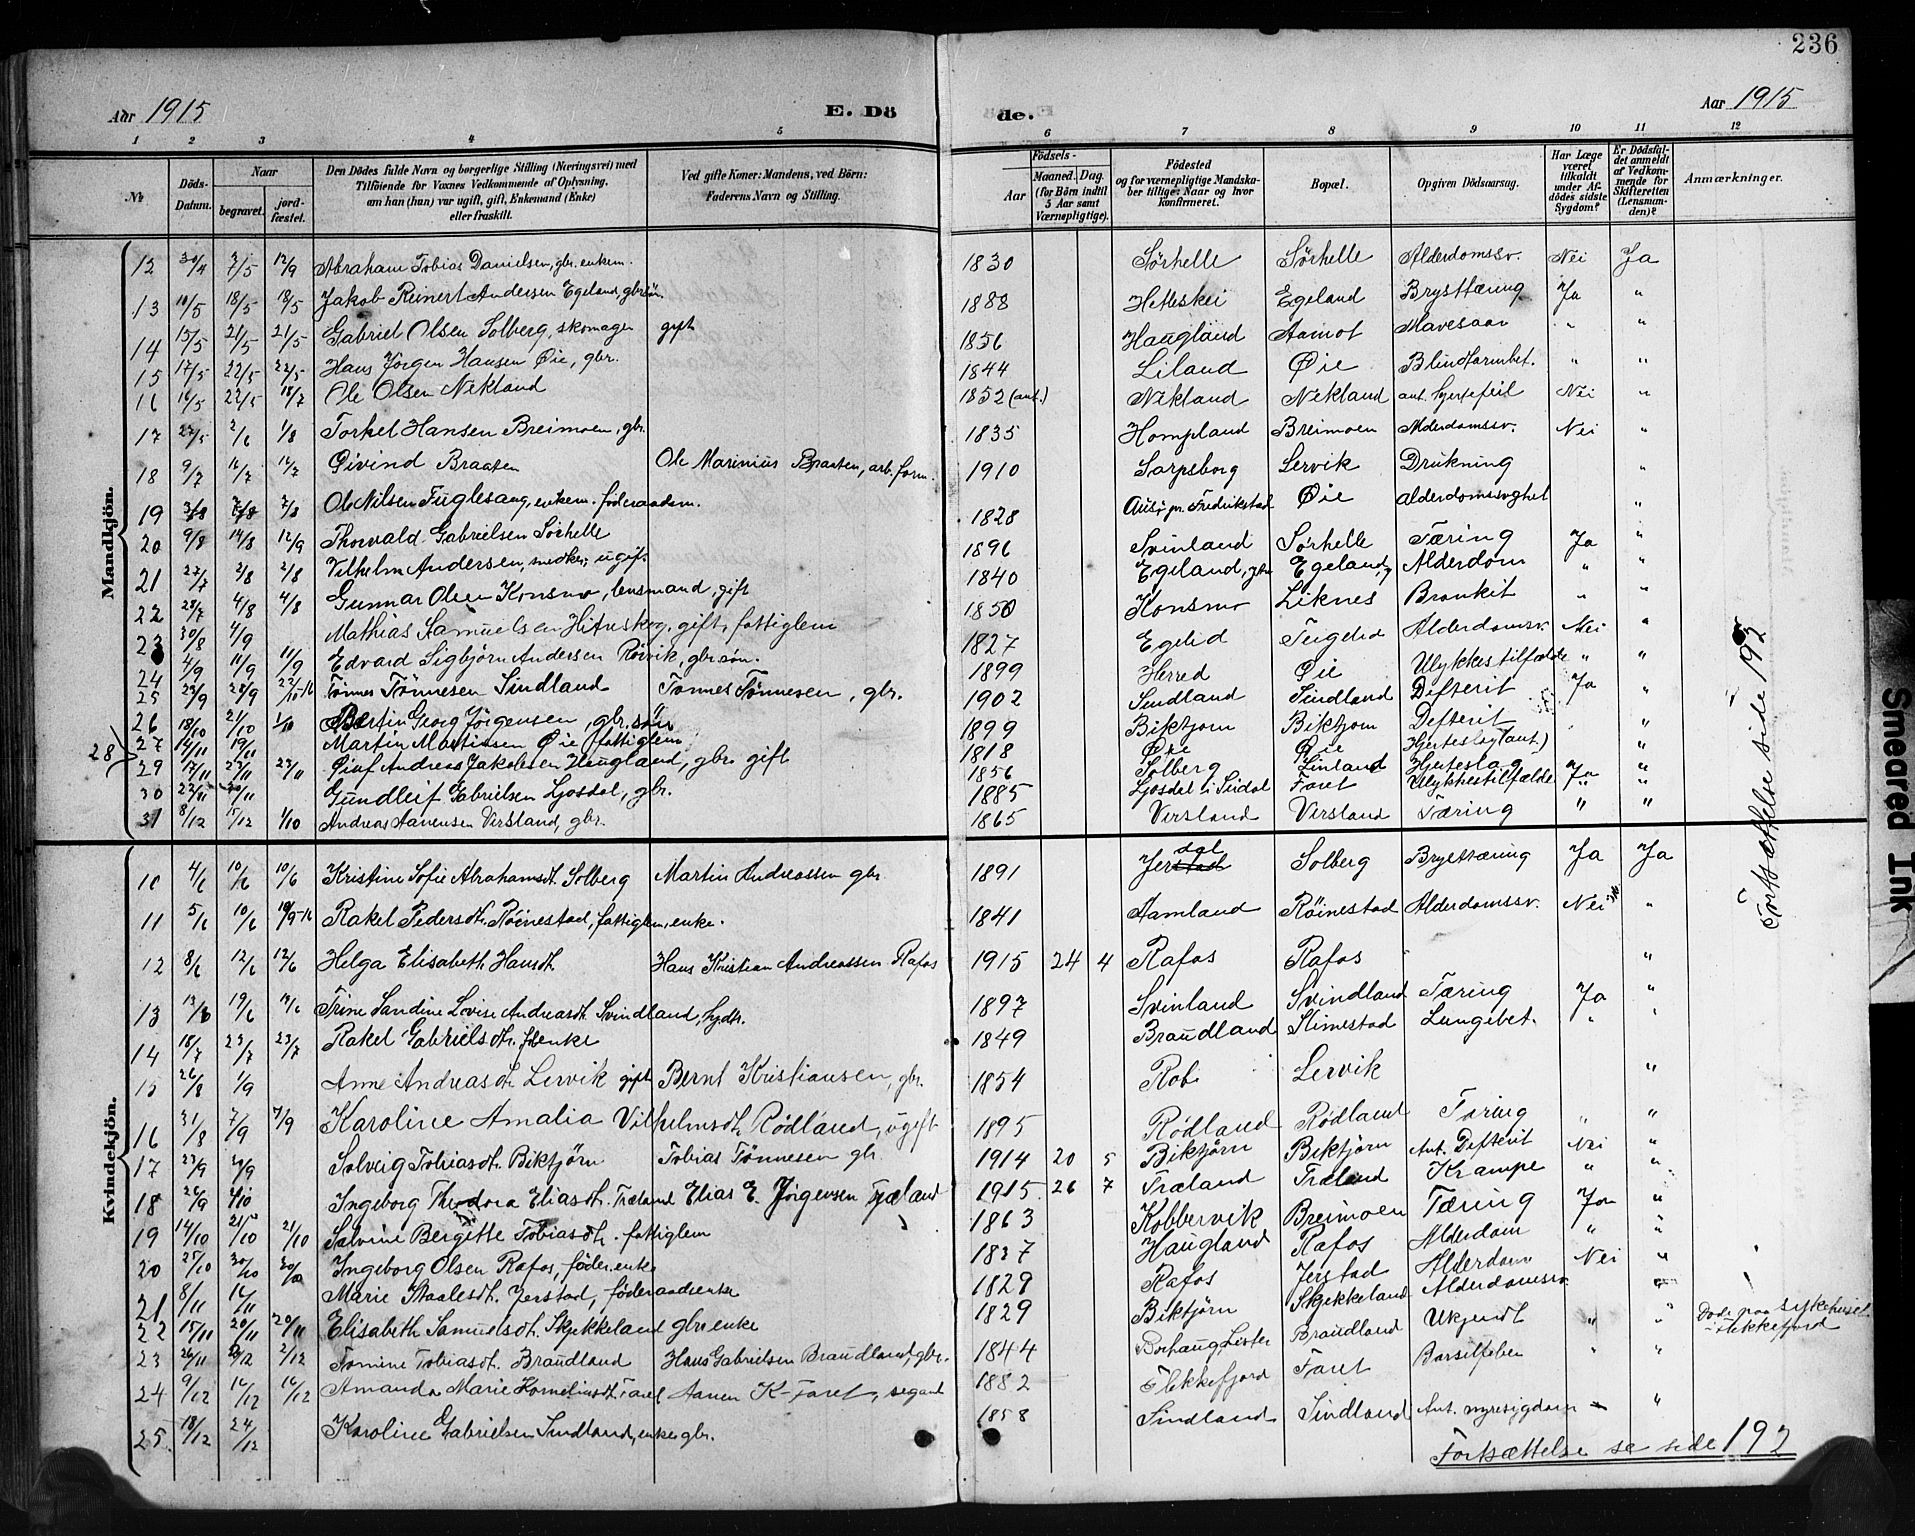 236
Aar 1915 E. Dö de. Aar 1915
1 2 3 4 5 6 7 8 9 10 11 12
№ Döds-Datum. Naar begravet. jord-fæstet. Den Dödes fulde Navn og borgerlige Stilling (Næringsvei) med Tilföiende for Voxnes Vedkommende af Oplysning, om han (hun) var ugift, gift, Enkemand (Enke) eller fraskilt. Ved gifte Koner: Mandens, ved Börn: Faderens Navn og Stilling. Födsels- Aar Maaned. Dag. (for Börn indtil 5 Aar samt Værnepligtige). Födested og for værnepligtige Mandskaber tillige: Naar og hvor konfirmeret. Bopæl. Opgiven Dödsaarsag. Har Læge været tilkaldt under Afdödes sidste Sygdom? Er Dödsfaldet anmeldt af Vedkommende for Skifteretten (Lensmanden)? Anmærkninger.
Mandkjön.
12 30/4 7/5 12/9 Abraham Tobias Danielsen, gbr. enkem. 1830 Sörhelle Sörhelle Alderdomssv. Nei Ja
13 10/5 18/5 18/5 Jakob Reinert Andersen Egeland, gbr.sön. 1888 Hitteskei Egeland Brysttæring Ja "
14 15/5 21/5 21/5 Gabriel Olsen Solberg, skomager gift 1856 Haugland Aamot Mavesaar " "
15 17/5 22/5 22/5 Hans Jörgen Hansen Øie, gbr. 1844 Liland Øie Blindtarmbet. " "
16 16/5 22/5 18/7 Ole Olsen Nikland 1852 (ant.) Nikland Nikland ant. hjertefeil Nei "
17 27/5 2/6 1/8 Torkel Hansen Breimoen, gbr. 1835 Hompland Breimoen Alderdomssv. Nei "
18 9/7 16/7 16/7 Øivind Braaten Ole Marinius Braaten, arb. form. 1910 Sarpsborg Lervik Drukning "
19 3/8 7/8 7/8 Ole Nilsen Fuglesang, enkem. föderaadsm. 1828 pr. Fredrikstad Øie alderdomssvghet "
20 9/8 14/8 12/9 Thorvald Gabrielsen Sörhelle 1896 Svinland Sörhelle Tæring Ja "
21 27/7 2/8 2/8 Vilhelm Andersen, snedker, ugift 1840 Egeland, gbr. Egeland Alderdom " "
22 28/7 4/8 4/8 Gunnar Olsen Konsmo, lensmand, gift 1850 Konsmo Liknes Bronkit " "
23 30/8 4/9 Mathias Samuelsen Hitreskog. gift, fattiglem 1827 Egelid Tugelid Alderdomsv. Nei "
24 4/9 11/9 11/9 Edvard Sigbjörn Andersen Röivik, gbr. sön. 1899 Herred Øie Ulykkestilfælde " "
25 23/9 28/9 22/10-16 Tönnes Tönnesen Sindland Tönnes Tönnesen, gbr. 1902 Sindland Sindland Difterit Ja "
26 18/10 21/10 1/10 Bertin Georg Jörgensen, gbr. sön " 1899 Biktjorn Biktjom Defterit "
27 14/11 19/11 Martin Martinsen Øie fattiglem 1818 Øie Øie Hjerteslag (ant.) "
28
29 17/11 23/11 23/11 Olaf Andreas Jakobsen Haugland, gbr. gift 1856 Solberg Linland Hjerteslag Ja "
30 22/11 Gundleif Gabrielsen Ljosdal, gbr. 1885 Ljosdal i Sirdal Faret Ulykkestilfælde " "
31 8/12 15/12 1/10 Andreas Aanensen Virsland, gbr. 1865 Virsland Virsland Tæring " "
Fortsættelse side 192
Kvindekjön.
10 4/6 10/6 10/6 Kristine Sofie Abrahamsdt. Solberg Martin Andreassen gbr. 1891 Jerstad dal Solberg Brysttæring Ja Ja
11 5/6 10/6 10/9-16 Rakel Pedersdt. Röinestad, fattiglem, enke. 1841 Aamland Röinestad Alderdomssv. Nei "
12 8/6 12/6 12/6 Helga Elisabeth Hansdt. Hans Kristian Andreassen Rafos 1915 24 4 Rafos Rafos "
13 13/6 19/6 19/6 Trine Sandine Lovise Andreasdt. Svindland, 1897 Svinland Svindland Tæring Ja "
14 18/7 23/7 23/7 Rakel Gabrielsdt. enke 1849 Braudland Stimestad Lungebet. " "
15 26/8 1/9 Anne Andreasdt. Lervik gift Bernt Kristiansen, gbr. 1854 Rob Lervik "
16 31/8 7/9 7/9 Karoline Amalia Vilhelmsdt. Rødland, ugift 1895 Rødland Rødland Tæring " "
17 23/9 29/9 Solveig Tobiasdt. Biktjörn Tobias Tönnesen gbr. 1914 20 5 Biktjörn Biktjörn Ant. Defterit Nei "
18 26/9 4/10 Ingeborg Theodora Eliasdt. Træland Elias E. Jörgensen Træland 1915 26 7 Træland Træland Krampe " "
19 14/10 21/10 21/10 Salvine Bergitte Tobiasdt. fattiglem 1863 Kobbervik Breimoen Tæring Ja "
20 25/10 30/10 30/10 Ingeborg Olsen Rafos, föder. enke 1837 Haugland Rafos Alderdom " "
21 8/11 16/11 Marie Staalesdt. Jerstad, föderaadsenke 1829 Rafos Jerstad Alderdom Nei "
22 15/11 20/11 20/11 Elisabeth Samuelsdt. Skjekkeland gbr. enke 1829 Biktjörn Skjekkeland Alderdomssv. "
23 26/11 2/12 2/12 Tomine Tobiasdt. Braudland Hans Gabrielsen Braudland, gbr. 1844 Borhaug Lister Braudland Ukjendt " " Döde paa sykehuset i Flekkefjord
24 9/12 16/12 16/12 Amanda Marie Korneliusdt. Faret Aanen K. Faret, 1882 Flekkefjord Faret Barselfeber " "
25. 18/12 24/12 Karoline Gabrielsen Sindland, enke gbr. 1858 Sindland Sindland Ant. nyresygdom "
Fortsættelse se side 192
Smeared Ink